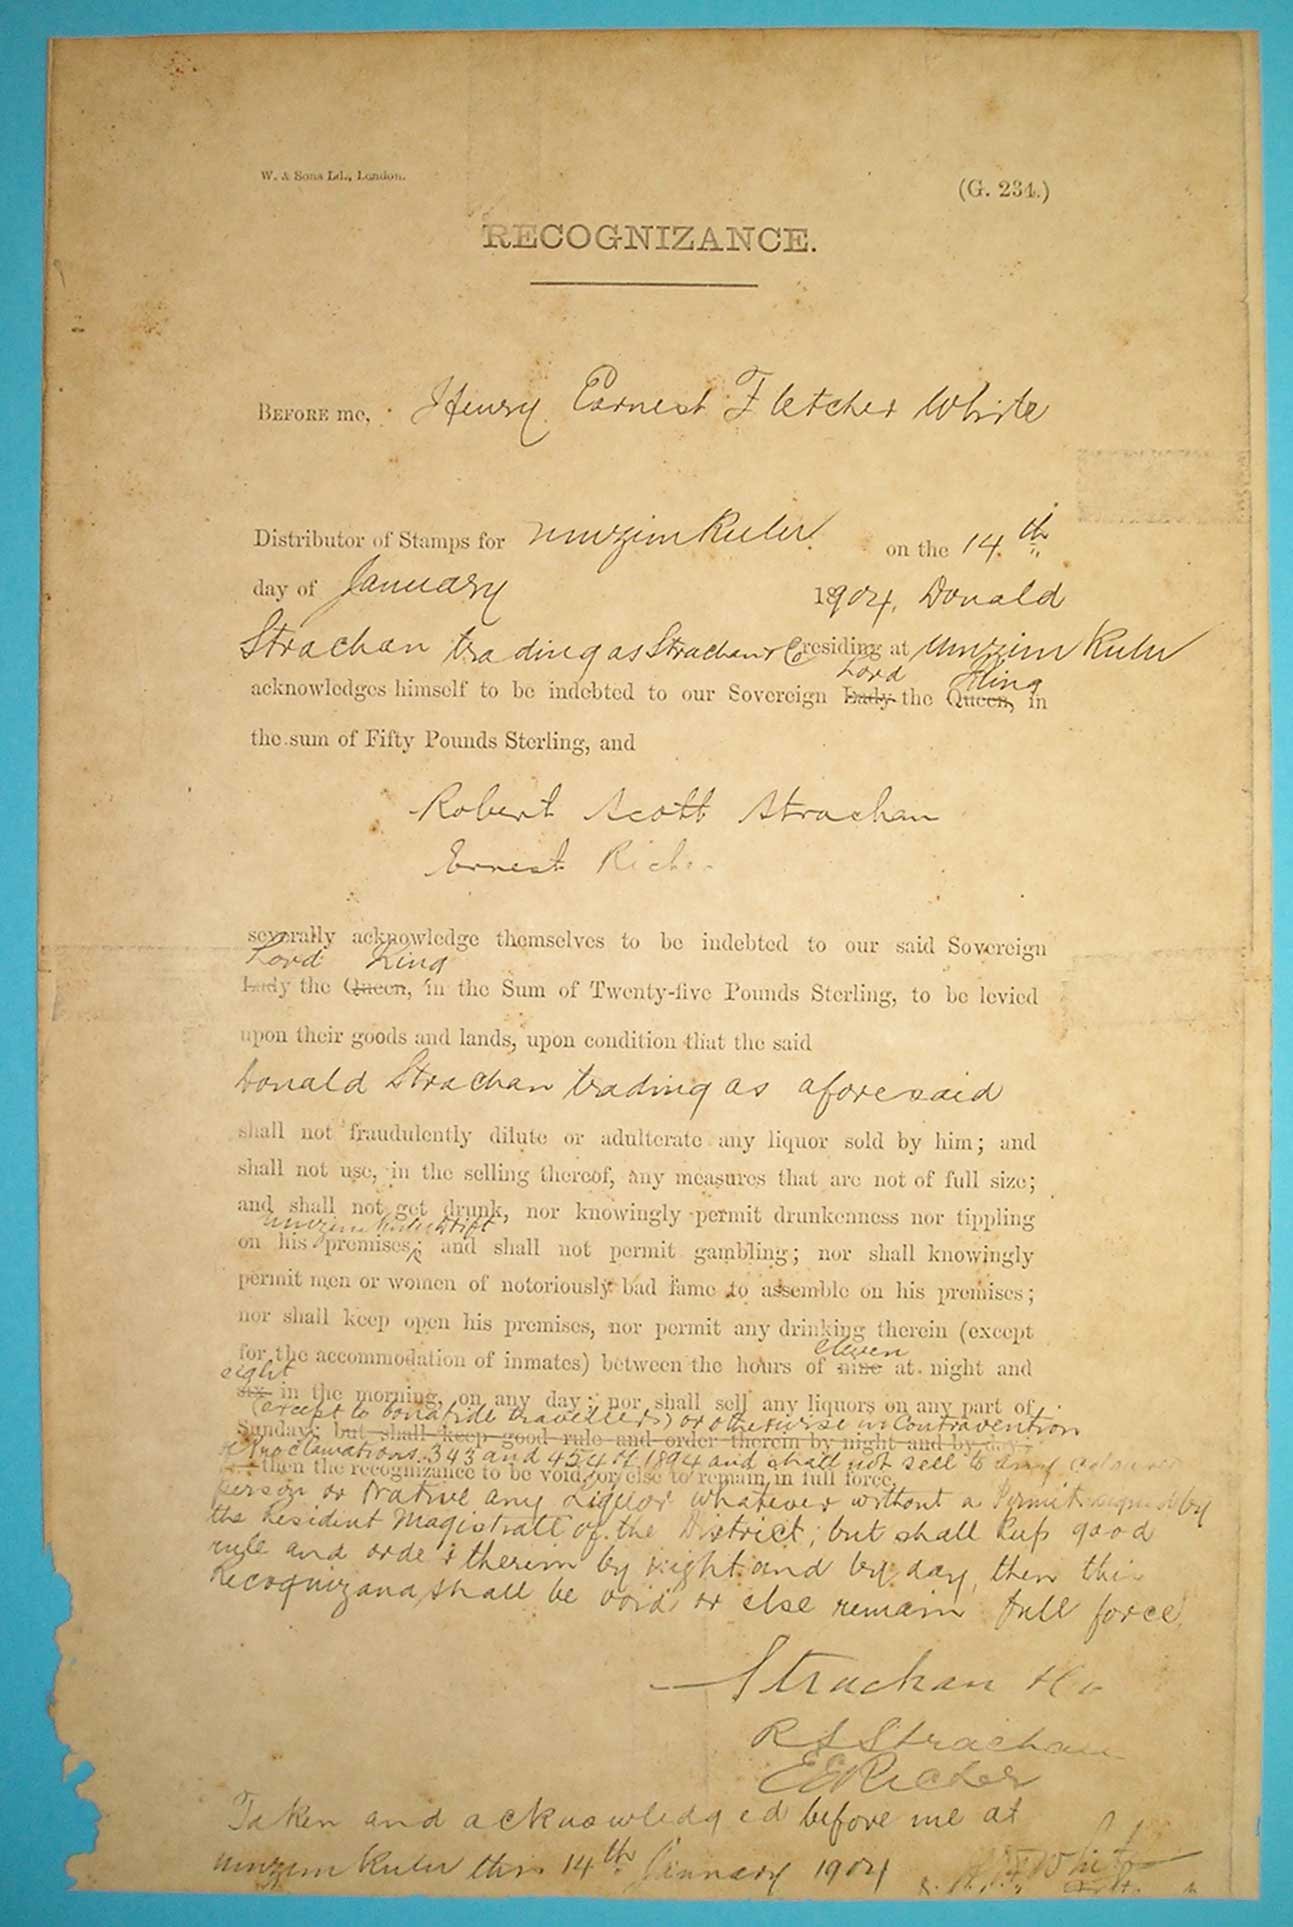 W. & Sons Ld., London.
(G. 234.)
RECOGNIZANCE.
BEFORE me, Henry Earnest Fletcher White
Distributor of Stamps for Umzimkulu on the 14th
day of January 1904, Donald
Strachan trading as Strachan & Co residing at Umzimkulu
Lord King
acknowledges himself to be indebted to our Sovereign Lady the Queen, in
the sum of Fifty Pounds Sterling, and
Robert Scott Strachan
Ernest
severally acknowledge themselves to be indebted to our said Sovereign
Lord King
Lady the Queen, in the Sum of Twenty-five Pounds Sterling, to be levied
upon their goods and lands, upon condition that the said
Donald Strachan trading as aforesaid
shall not fraudulently dilute or adulterate any liquor sold by him; and
shall not use, in the selling thereof, any measures that are not of full size;
and shall not get drunk, nor knowingly permit drunkenness nor tippling
Umzimkulu Drift
on his premises; and shall not permit gambling; nor shall knowingly
permit men or women of notoriously bad fame to assemble on his premises;
nor shall keep open his premises, nor permit any drinking therein (except
eleven
for the accommodation of inmates) between the hours of nine at night and
eight
six in the morning, on any day; nor shall sell any liquors on any part of
(except to bonafide travellers) or otherwise in Contravention
Sunday; but shall keep good rule and order therein by night and by day;
of Proclamations 343 and 454 of 1894 and shall not sell to any coloured
then the recognizance to be void, or else to remain in full force.
person or Native any Liquor whatever without a Permit signed by
the Resident Magistrate of the District; but shall keep good
rule and order therein by night and by day, then this
Recognizance shall be void or else remain full force
Strachan & Co
R S Strachan
Taken and acknowledged before me at
Umzimkulu this 14th January 1904 White